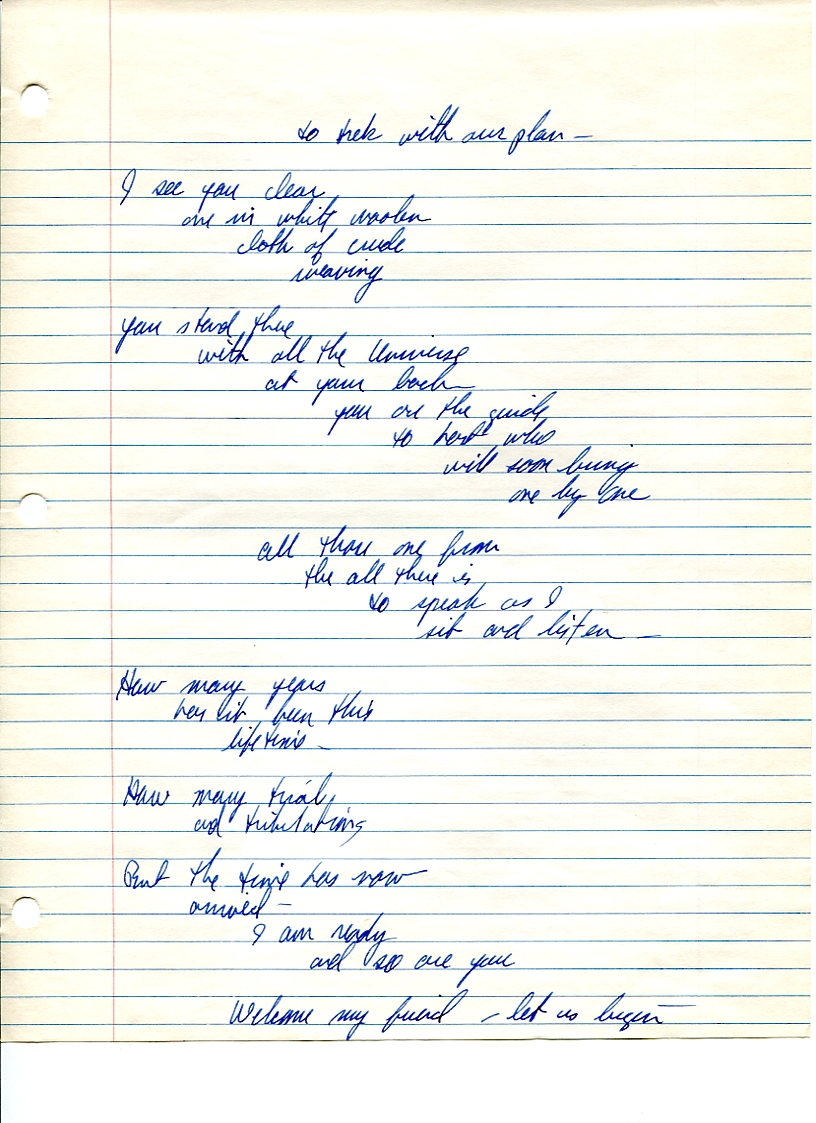 to trek with our plan —
I see you clear
one in white woolen
cloth of crude
weaving
you stand there
with all the Universe
at your back
you are the guide
to host who
will soon bring
one by one
all those one from
the all there is
to speak as I
sit and listen —
How many years
has it been this
lifetime —
How many trials
and tribulations
But the time has now
arrived —
I am ready
and so are you
Welcome my friend — let us begin